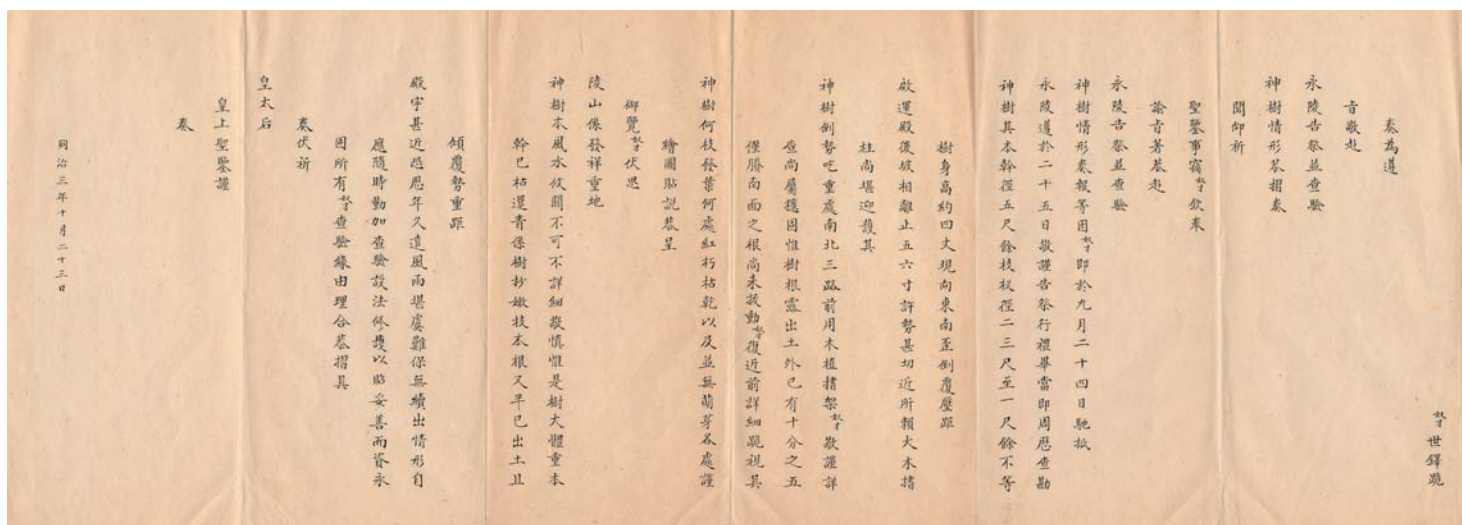 奴才世鐸跪
奏為遵
旨敬赴
永陵告祭並查驗
神樹情形恭摺奏
聞仰祈
聖鑒事竊奴才欽奉
諭旨著恭赴
永陵告祭並查驗
神樹情形奏報等因奴才即於九月二十四日馳抵
永陵遵於二十五日敬謹告祭行禮畢當即周歷查勘
神樹其本幹徑五尺餘枝杈徑二三尺至一尺餘不等
樹身高約四丈現向東南歪倒覆壓距
啟運殿後坡相離止五六寸許勢甚切近所賴大木撐
柱尚堪迎護其
神樹倒勢吃重處南北三路前用木植撐架奴才敬謹詳
查尚屬穩固惟樹根露出土外已有十分之五
僅賸南面之根尚未拔動奴才復近前詳細跪視其
神樹何枝發葉何處紅朽枯乾以及並無萌芽各處謹
繪圖貼說恭呈
御覽奴才伏思
陵山係發祥重地
神樹本風水攸關不可不詳細敬慎惟是樹大體重本
幹已枯還青係樹抄嫩枝本根又早已出土且
傾覆勢重距
殿宇甚近恐歷年久遠風雨堪虞難保無續出情形自
應隨時勤加查驗設法修護以昭妥善而資永
固所有奴才查驗緣由理合恭摺具
奏伏祈
皇太后
皇上聖鑒謹
奏
同治三年十月二十三日